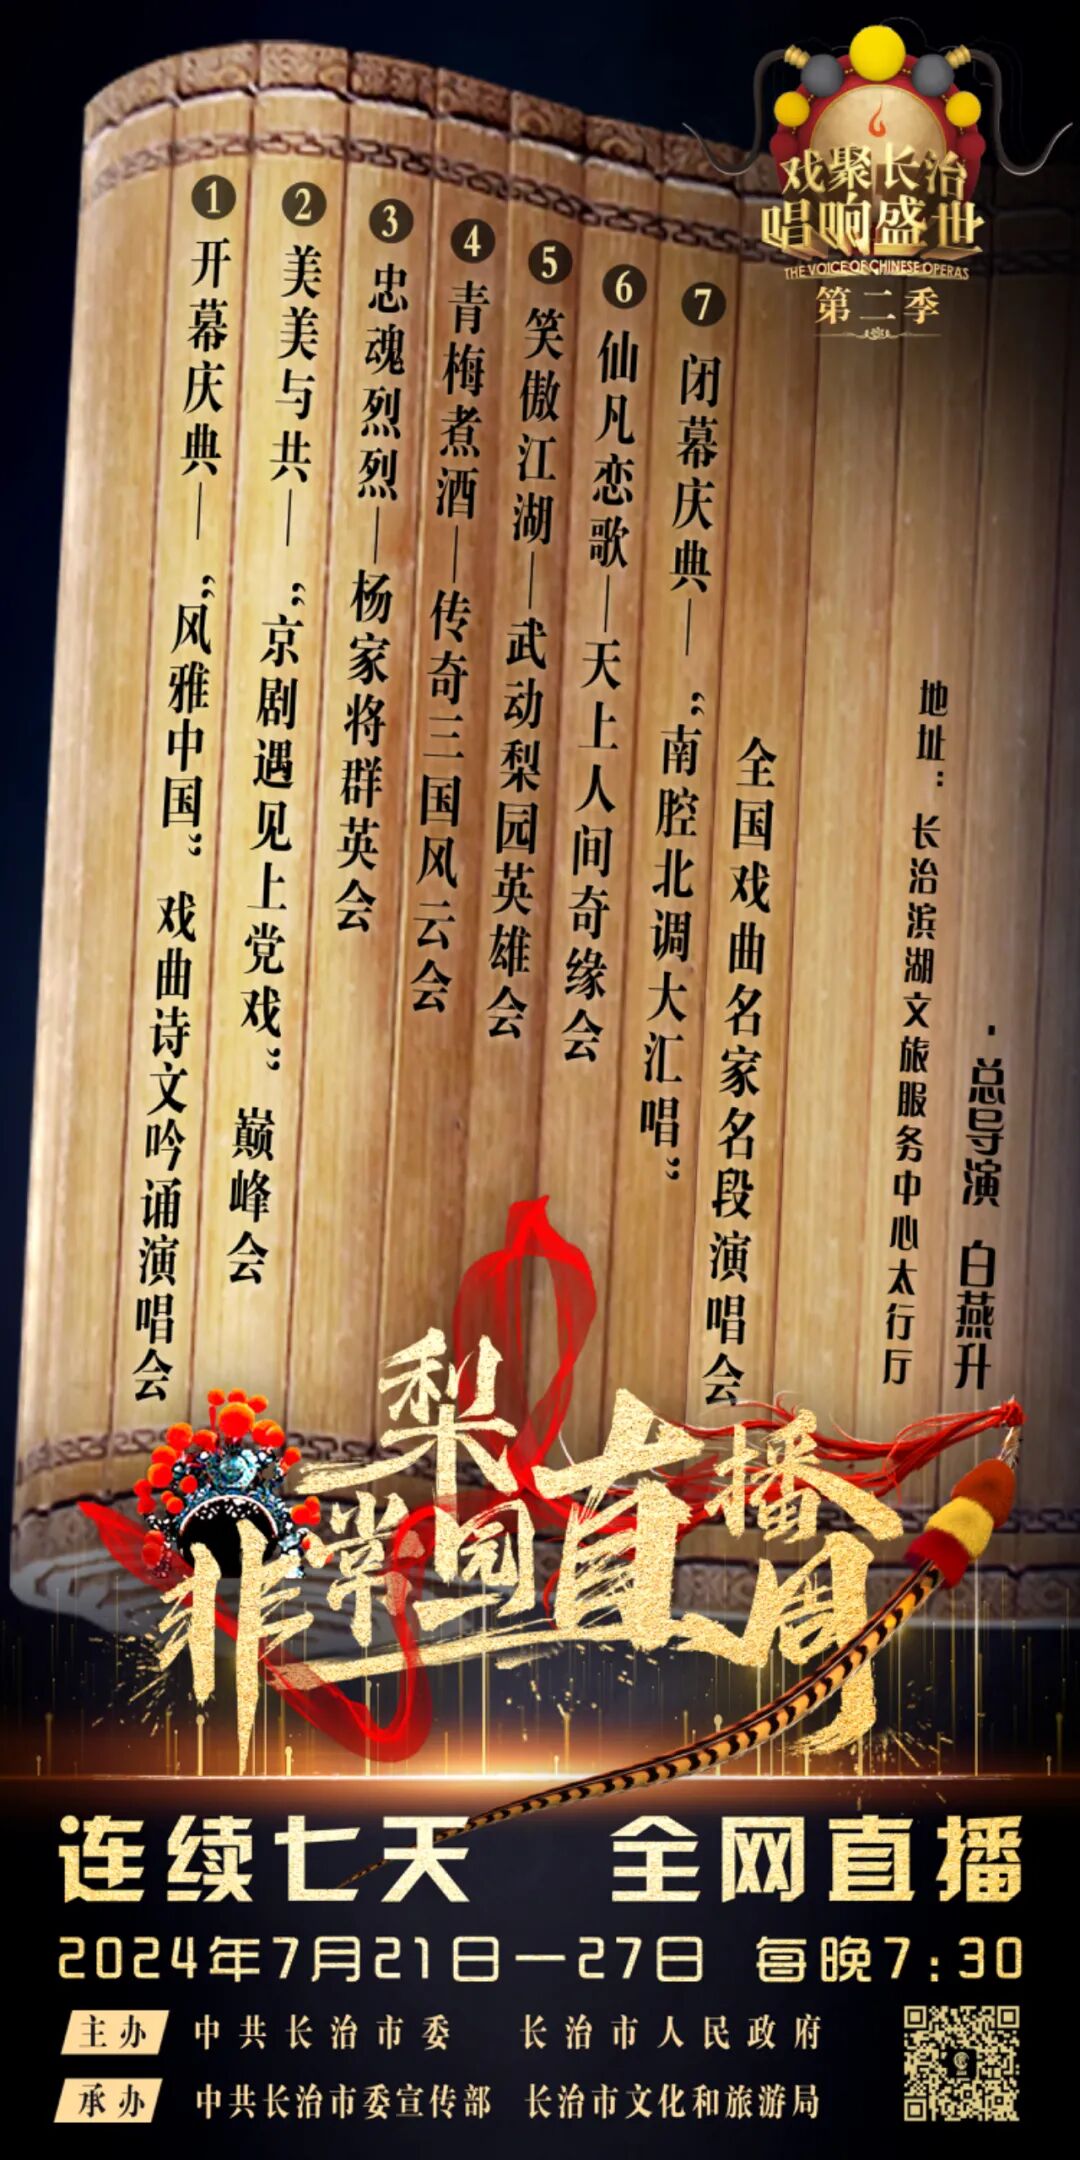 戏聚长治
唱响盛世
THE VOICE OF CHINESE OPERAS
第二季
1 开幕庆典—“风雅中国”戏曲诗文吟诵演唱会
2 美美与共—“京剧遇见上党戏”巅峰会
3 忠魂烈烈—杨家将群英会
4 青梅煮酒—传奇三国风云会
5 笑傲江湖—武动梨园英雄会
6 仙凡恋歌—天上人间奇缘会
7 闭幕庆典—“南腔北调大汇唱”
全国戏曲名家名段演唱会
地址：长治滨湖文旅服务中心太行厅
·总导演 白燕升
梨园直播
非常周
连续七天 全网直播
2024年7月21日—27日 每晚7:30
主办 中共长治市委 长治市人民政府
承办 中共长治市委宣传部 长治市文化和旅游局